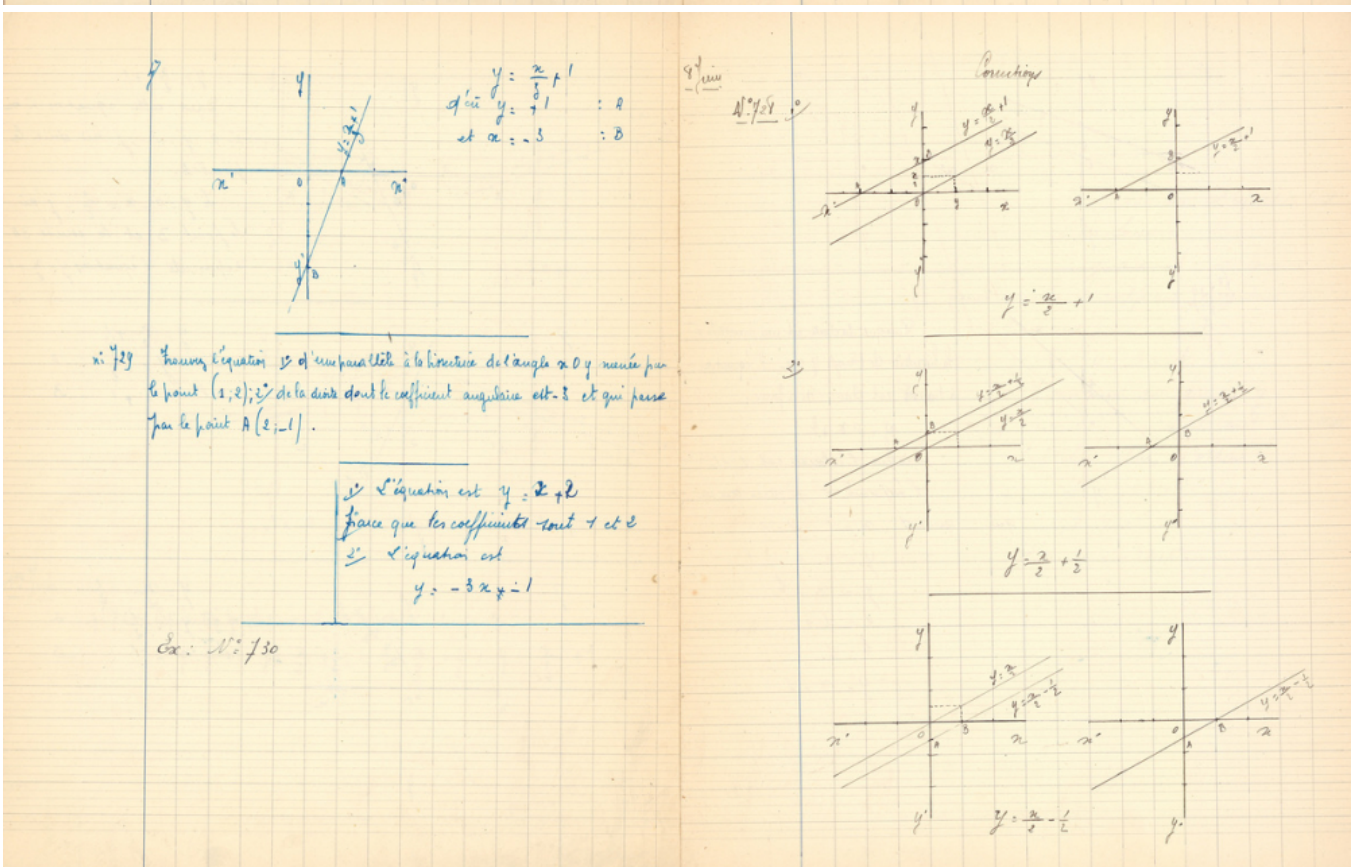 y
y = x/3 + 1
d'où y = +1 : A
et x = -3 : B
y = x/3 + 1
x' 0 A x
y'
B
n° 729 Trouvez l'équation 1° d'une parallèle à la bissectrice de l'angle x0y menée par
le point (1;2); 2° de la droite dont le coefficient angulaire est -3 et qui passe
par le point A (2;-1).
1° L'équation est y = x + 2
parce que les coefficients sont 1 et 2
2° L'équation est
y = -3x + -1
Ex: N° 730
8 Juin
Corrections
N° 728 1°
y y
y = x/2 + 1
y = x/2
y = x/2 + 1
B
A
x' 0 2 x
x' A 0 x
y' y'
y = x/2 + 1
2°
y y
y = x/2 + 1/2
y = x/2
y = x/2 + 1/2
A B
x' 0 x
A B
x' 0 x
y' y'
y = x/2 + 1/2
y y
y = x/2
y = x/2 - 1/2
y = x/2 - 1/2
x' 0 A B x
x' 0 A B x
y' y'
y = x/2 - 1/2